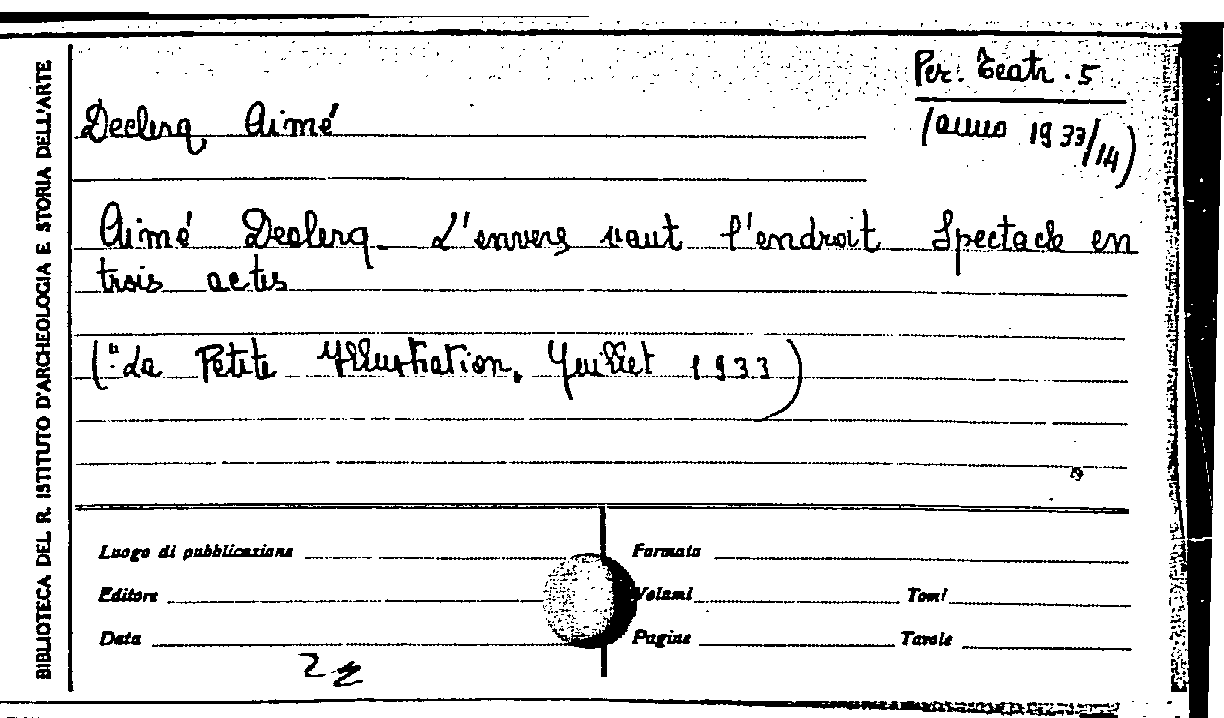 BIBLIOTECA DEL R. ISTITUTO D'ARCHEOLOGIA E STORIA DELL'ARTE
Per. Teatr. 5
(anno 1933/14)
Declerq, Aimé
Aimé Declerq_ L'envers vaut l'endroit_ Spectacle en
trois actes
(": La Petite Yllustration, Juillet 1933)
Luogo di pubblicazione
Formato
Editore
Volumi
Tomi
Data
Pagine
Tavole